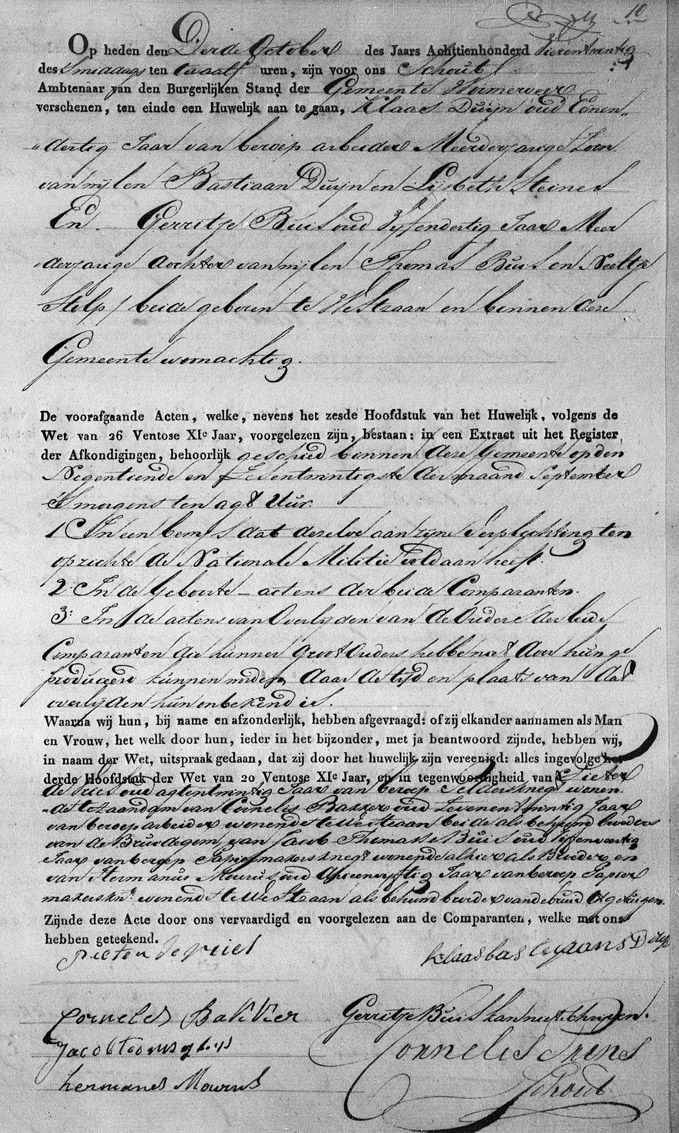 10
Op heden den Derde October des Jaars Achttienhonderd Vierentwintig
des Smiddags ten twaalf uren, zijn voor ons Schout
Ambtenaar van den Burgerlijken Stand der Gemeente
verschenen, ten einde een Huwelijk aan te gaan, Klaas Duijn oud Eenen
dertig Jaar van beroep arbeider Meerderjarige Zoon
van wijlen Bastiaan Duijn en Lijsbeth Steines
En Gerritje Buis oud Vijfendertig Jaar Meer
derjarige dochter van wijlen Thomas Buis en Neeltje
Stolp / beide geboren te Westzaan en binnen deze
Gemeente woonachtig.
De voorafgaande Acten, welke, nevens het zesde Hoofdstuk van het Huwelijk, volgens de
Wet van 26 Ventose XIe Jaar, voorgelezen zijn, bestaan: in een Extract uit het Register
der Afkondigingen, behoorlijk geschied binnen deze Gemeente op den
Negentiende en Zesentwintigste der maand September
Smorgens ten agt Uur.
1 In een bewijs dat dezelve aan zijne verplichting ten
opzichte de Nationale Militie voldaan heeft.
2 In de Geboorte-actens der beide Comparanten.
3 In de actens van Overlijden van de Ouders der beide
Comparanten die hunner Groot Ouders hebbe niet door hun ge
produceerd kunnen worden daar de tijd en plaats van dat
overlijden hun onbekend is.
Waarna wij hun, bij name en afzonderlijk, hebben afgevraagd: of zij elkander aannamen als Man
en Vrouw, het welk door hun, ieder in het bijzonder, met ja beantwoord zijnde, hebben wij,
in naam der Wet, uitspraak gedaan, dat zij door het huwelijk zijn vereenigd: alles ingevolge het
derde Hoofdstuk der Wet van 20 Ventose XIe Jaar, en in tegenwoordigheid van Pieter
de Vries oud agtentwintig Jaar van beroep Zeldersknegt wonen
de te Zaandam van Cornelis Bakker oud Zevenentwintig Jaar
van beroep arbeider wonende te Westzaan beide als behuwd broeders
van de Bruidegom, van Jacob Thomasse Buis oud
Jaar van beroep Papiermakersknegt wonende alhier als Broeder en
van Hermanus Mourus oud Jaar van beroep Papier
makerskn wonende te Westzaan als behuwd broeder van de bruid als getuigen.
Zijnde deze Acte door ons vervaardigd en voorgelezen aan de Comparanten, welke met ons
hebben geteekend.
Pieter de vries
Klaas bastejaans D
Corneles Bakker Gerritje Buis kan niet schrijven.
Jacob tomas buis Cornelis Prens
hermanes Mourus Schout